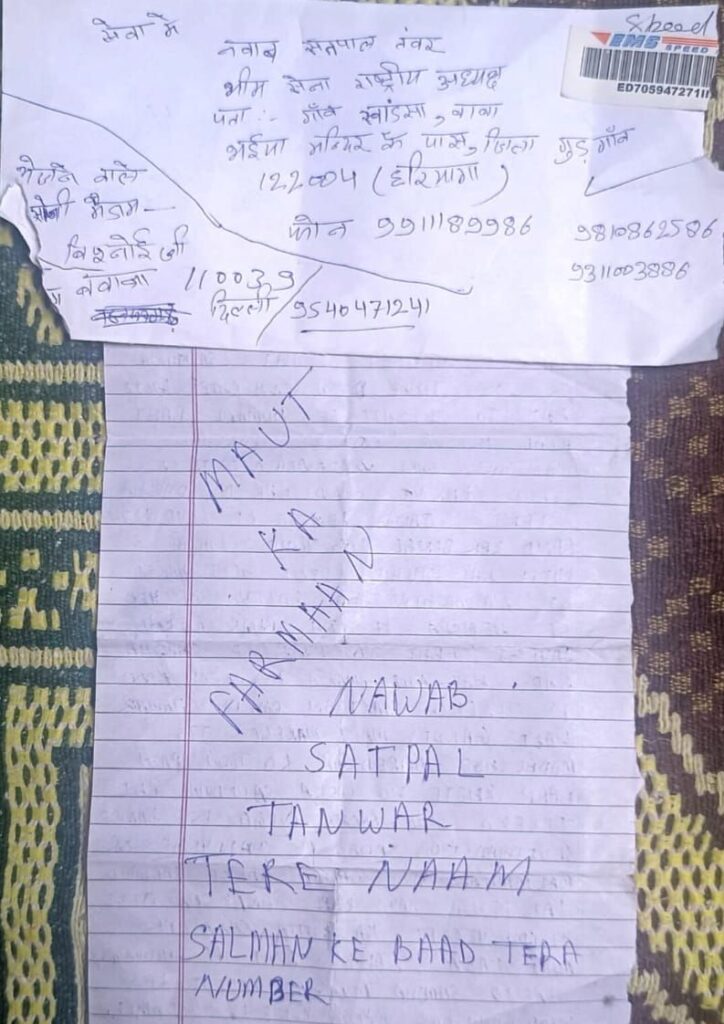 सेवा में
Speed
EMS SPEED
ED705947271IN
नवाब सतपाल तंवर
भीम सेना राष्ट्रीय अध्यक्ष
पता :- गाँव खांडसा, बाबा
भईया मन्दिर के पास, जिला गुड़गाँव
122004 (हरियाणा)
फोन 9911189986 9810862586
9311003886
भेजने वाले
मैडम —
बिश्नोई जी
बवाना 110039
दिल्ली 9540471241
MAUT
KA
FARMAAN
NAWAB
SATPAL
TANWAR
TERE NAAM
SALMAN KE BAAD TERA
NUMBER